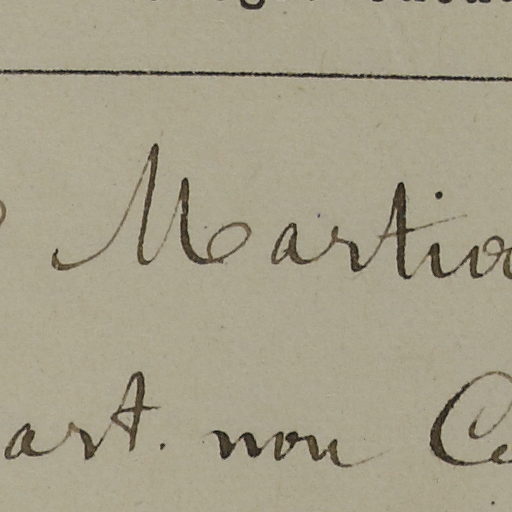 Martiu
art. non Ce